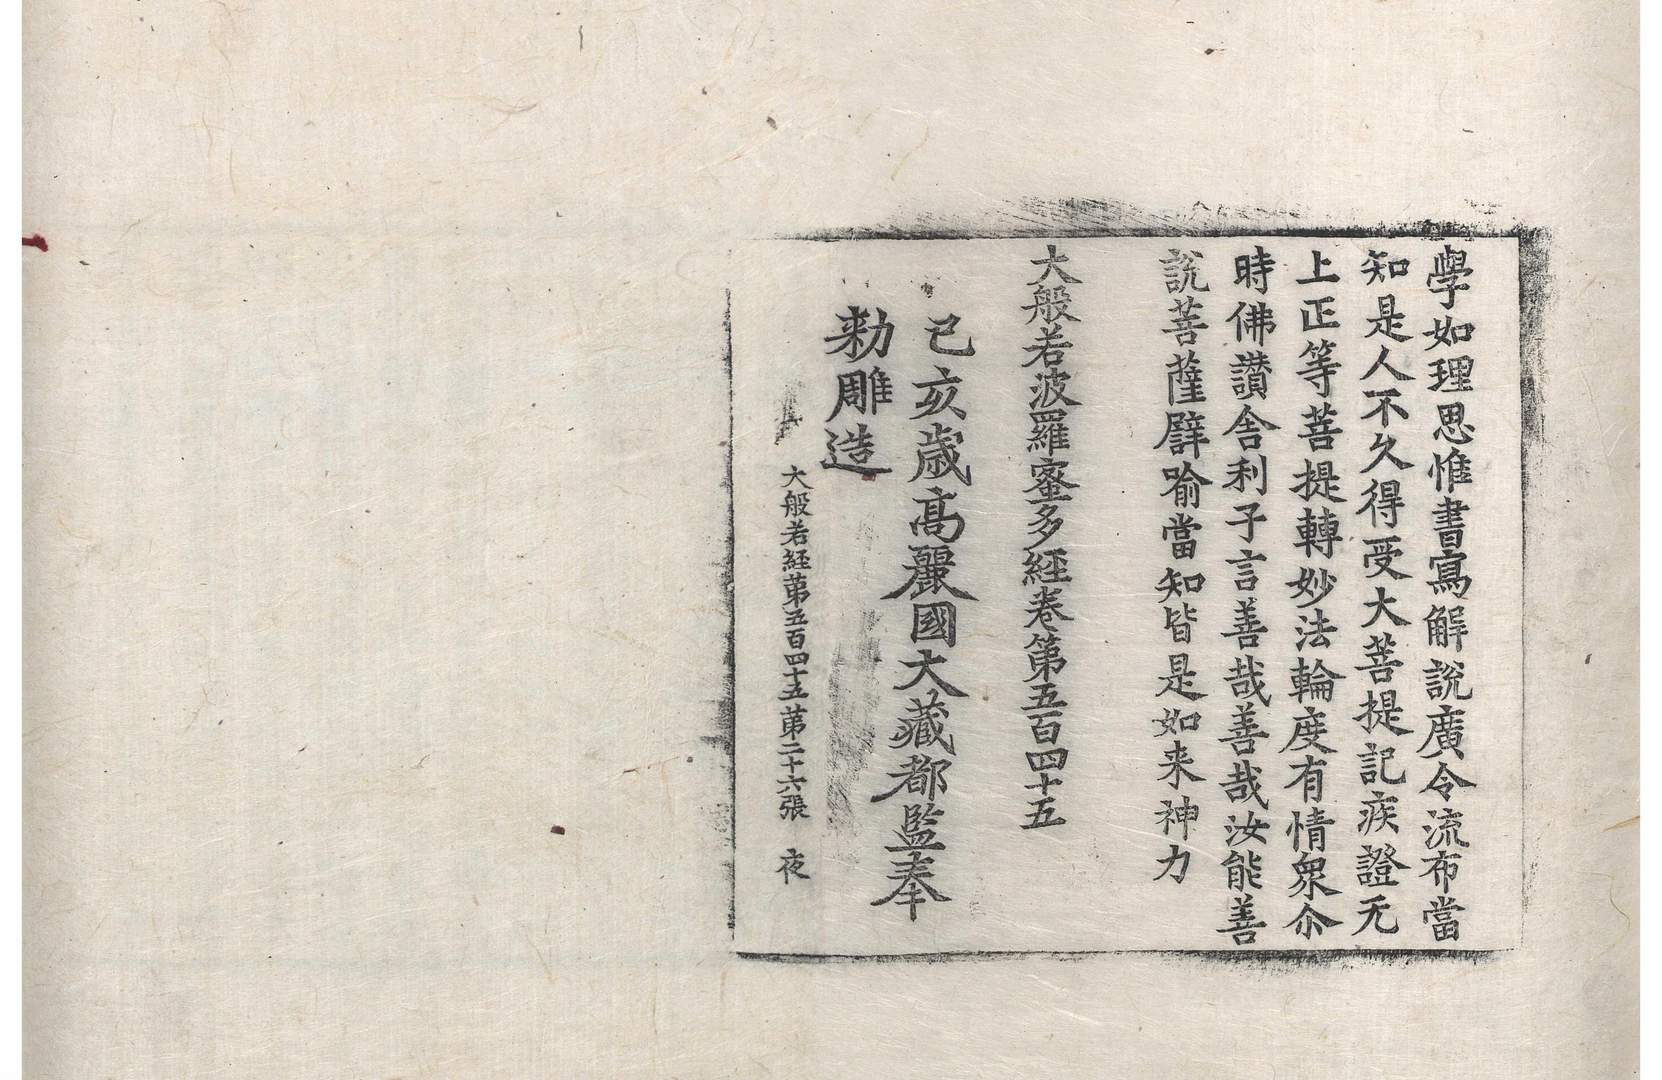 學如理思惟書寫解說廣令流布當
知是人不久得受大菩提記疾證无
上正等菩提轉妙法輪度有情衆尒
時佛讃舍利子言善哉善哉汝能善
說菩薩譬喻當知皆是如来神力
大般若波羅蜜多經卷第五百四十五
己亥歳髙麗國大藏都監奉
勑雕造
大般若経苐五百四十五苐二十六張 夜